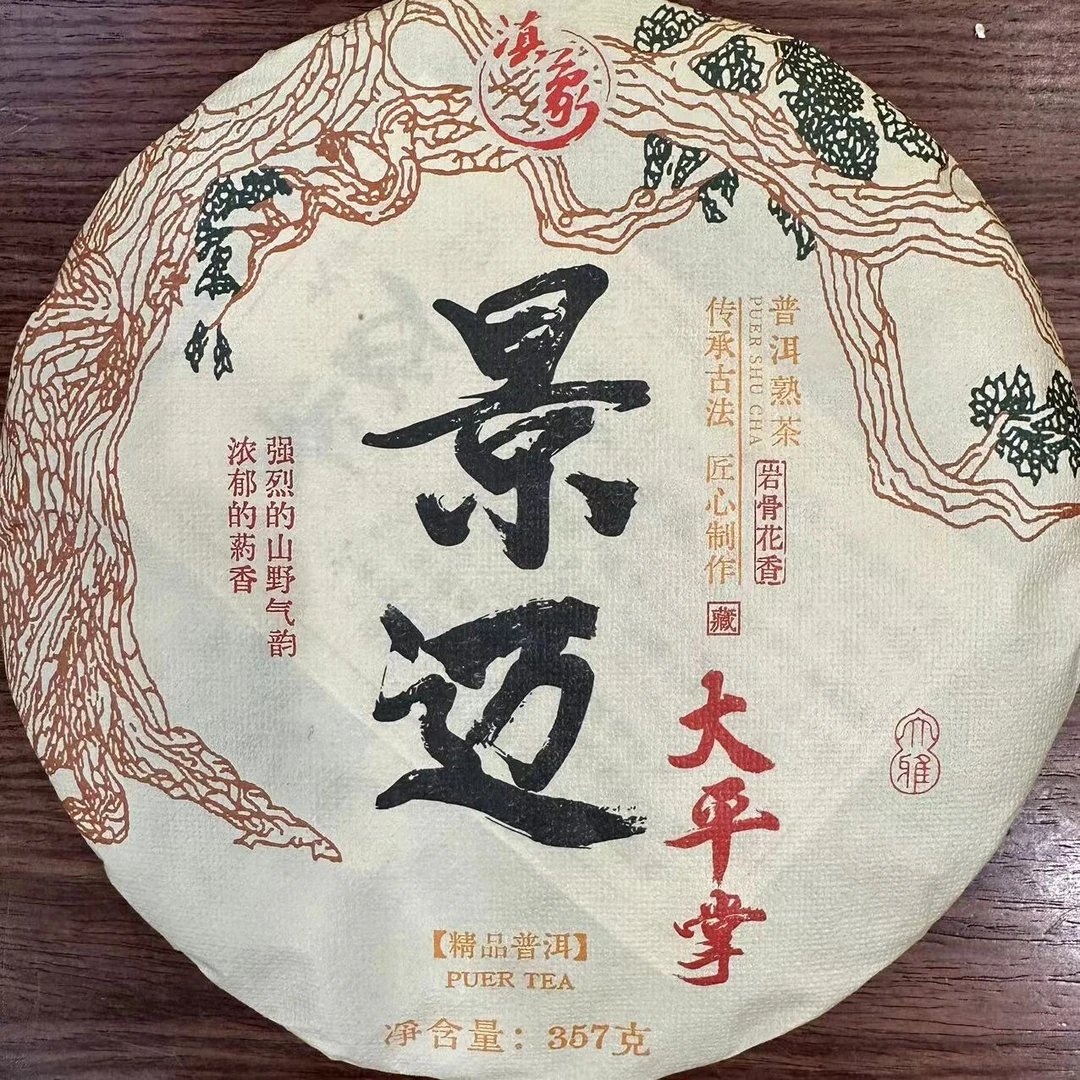 滇象
景迈
普洱熟茶
PUER SHU CHA
岩骨花香
传承古法 匠心制作
藏
大平掌
强烈的山野气韵
浓郁的药香
大雅
【精品普洱】
PUER TEA
净含量：357克